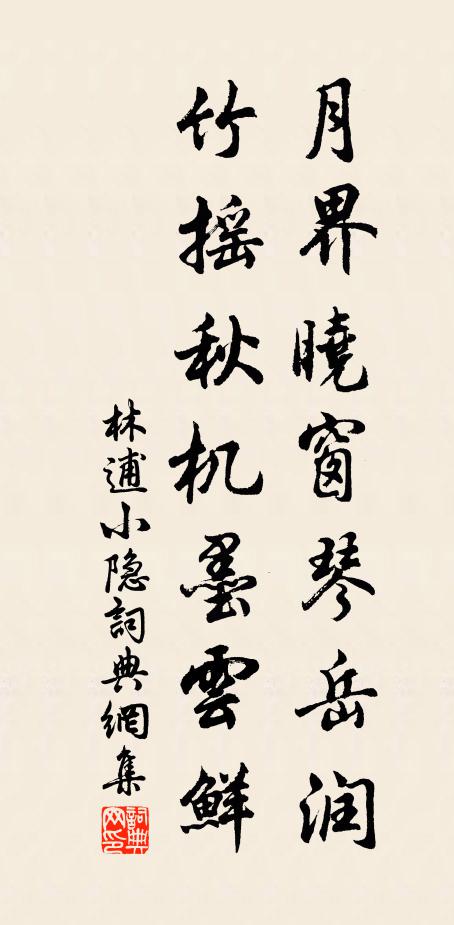 月界曉窗琴岳润
竹摇秋机墨雲鮮
林逋小隐詞典網集
詞典网印